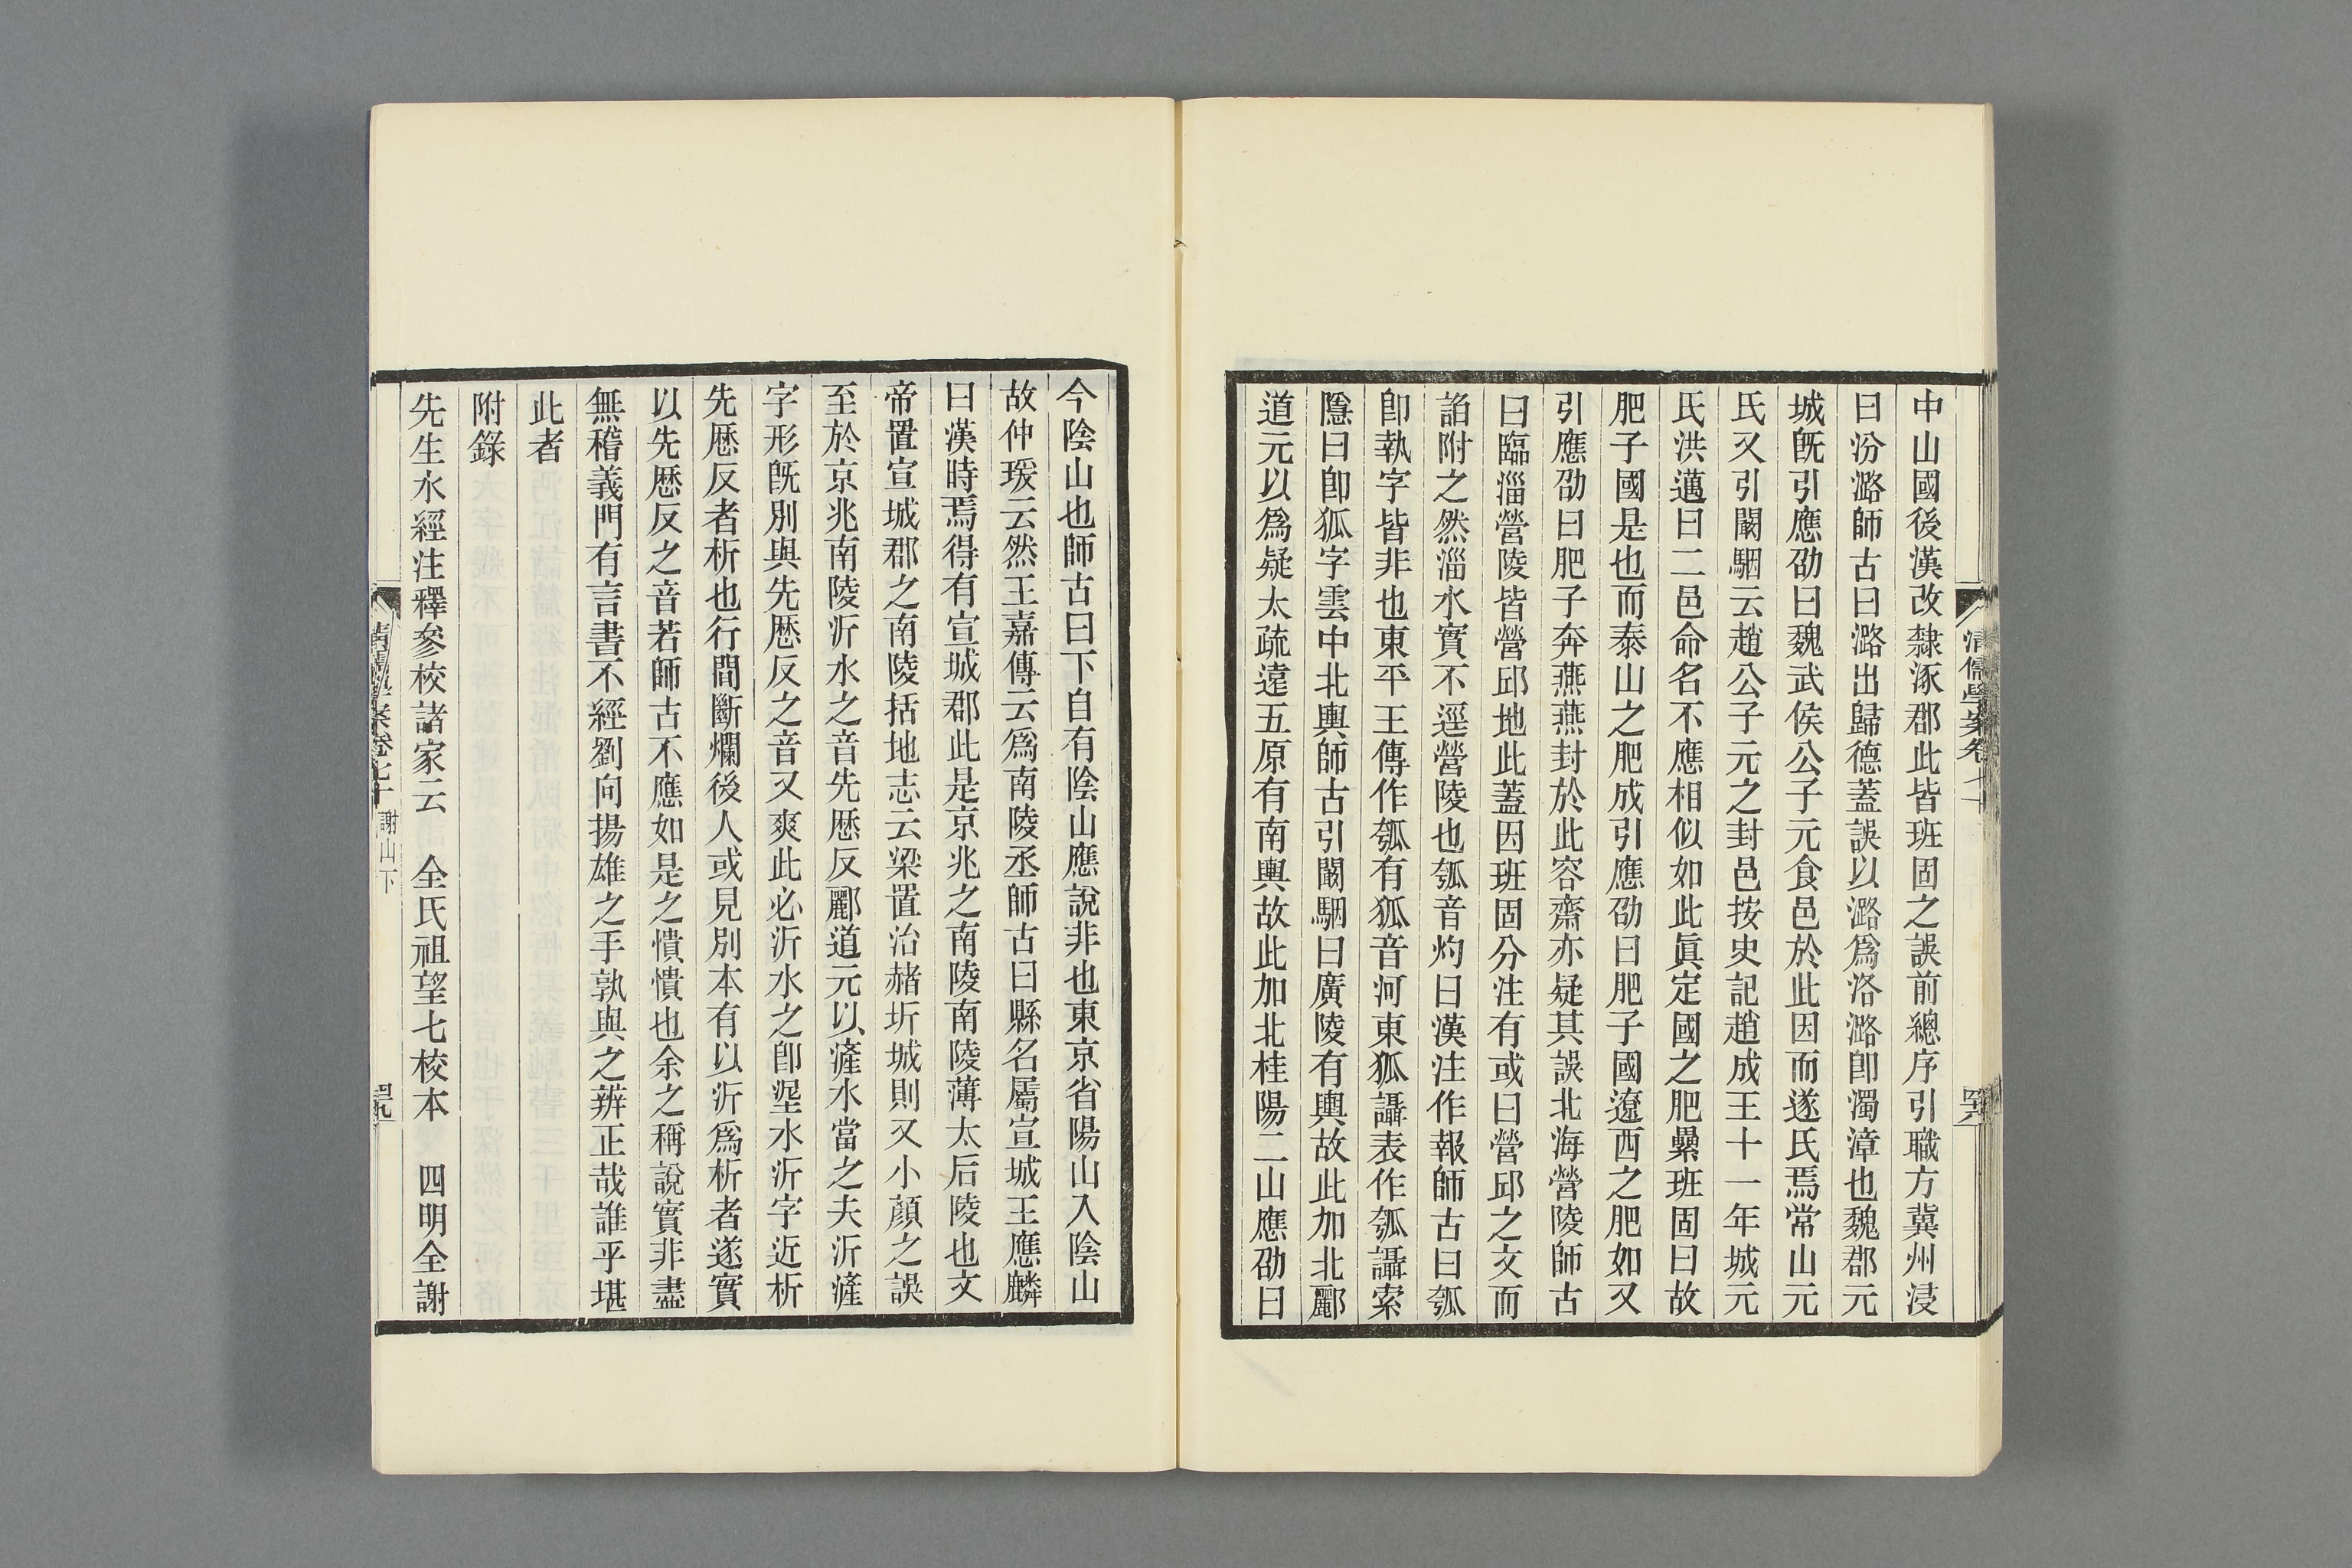 清儒學案卷七十
中山國後漢改隸涿郡此皆班固之誤前總序引職方冀州浸
曰汾潞師古曰潞出歸德蓋誤以潞爲洛潞卽濁漳也魏郡元
城旣引應劭曰魏武侯公子元食邑於此因而遂氏焉常山元
氏又引闞駰云趙公子元之封邑按史記趙成王十一年城元
氏洪邁曰二邑命名不應相似如此眞定國之肥纍班固曰故
肥子國是也而泰山之肥成引應劭曰肥子國遼西之肥如又
引應劭曰肥子奔燕燕封於此容齋亦疑其誤北海營陵師古
曰臨淄營陵皆營邱地此蓋因班固分注有或曰營邱之文而
詒附之然淄水實不逕營陵也瓠音灼曰漢注作報師古曰瓠
卽執字皆非也東平王傳作瓠有狐音河東狐讘表作瓠讘索
隱曰卽狐字雲中北輿師古引闞駰曰廣陵有輿故此加北酈
道元以爲疑太疏遠五原有南輿故此加北桂陽二山應劭曰
今陰山也師古曰下自有陰山應說非也東京省陽山入陰山
故仲瑗云然王嘉傳云爲南陵丞師古曰縣名屬宣城王應麟
曰漢時焉得有宣城郡此是京兆之南陵南陵薄太后陵也文
帝置宣城郡之南陵括地志云梁置治赭圻城則又小顏之誤
至於京兆南陵沂水之音先厯反酈道元以滻水當之夫沂滻
字形旣別與先厯反之音又爽此必沂水之卽㴲水沂字近析
先厯反者析也行間斷爛後人或見別本有以沂爲析者遂實
以先厯反之音若師古不應如是之憒憒也余之稱說實非盡
無稽義門有言書不經劉向揚雄之手孰與之辨正哉誰乎堪
此者
附錄
先生水經注釋參校諸家云　全氏祖望七校本　四明全謝
清儒學案卷七十　謝山下